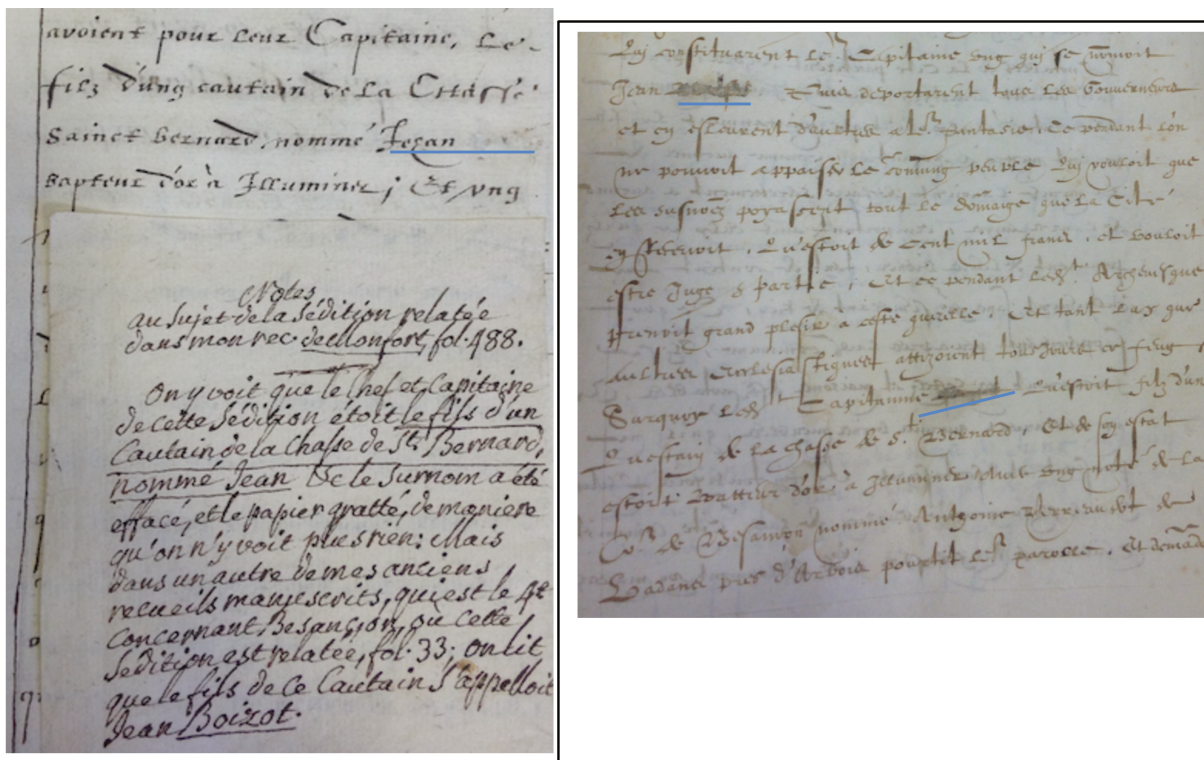 avoient pour leur Capitaine, Le
filz d'ung cautain de La Chasse
Sainct Bernard, nommé Jean
d'or à Illuminer; Et ung
Notes
au sujet de la sédition relatée
dans mon rec. de Monfort, fol. 488.
On y voit que le chef et Capitaine
de cette sédition étoit le fils d'un
Cautain de la Chasse de St. Bernard,
nommé Jean Et le surnom a été
effacé, et le papier gratté, de maniere
qu'on n'y voit plus rien: Mais
dans un autre de mes anciens
recueils manuscrits, qui est le 4e
concernant Besançon, où cette
sédition est relatée, fol. 33; on lit
que le fils de ce Cautain s'appelloit
Jean Boizot.
Qui constituarent le Capitaine ung qui se nomoit
Jean deportarent tous les Gouverneurs
et en esleurent d'aultres a le fantasie. Ce pendant l'on
ne pouvoit appaiser le commung peuple qui vouloit que
les payassent tout le domaige que la Cité
Qu'estoit de Cent mil francs, et vouloit
estre Juge & partie. Et ce pendant Archevesque
prenoit grand plesir a ceste querelle. Et tant Lay que
aultres Ecclesiastiques attizoient tousjours ce feug
Surquoy Led.t Capitaine qu'estoit filz d'un
de la chasse de S. Bernard. Et de son estat
estoit d'or à Illuminer
de Besançon nommé Anthoine
pres d'Arbois parolle. Et